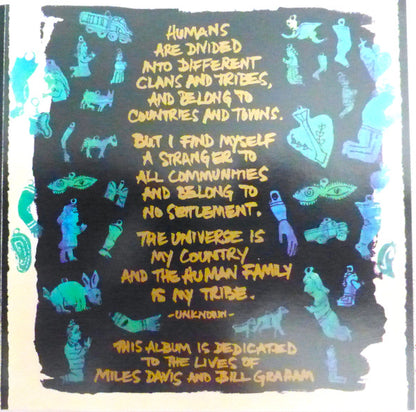 HUMANS
ARE DIVIDED
INTO DIFFERENT
CLANS AND TRIBES,
AND BELONG TO
COUNTRIES AND TOWNS.
BUT I FIND MYSELF
A STRANGER TO
ALL COMMUNITIES
AND BELONG TO
NO SETLEMENT.
THE UNIVERSE IS
MY COUNTRY
AND THE HUMAN FAMILY
IS MY TRIBE.
-UNKNOWN-
THIS ALBUM IS DEDICATED
TO THE LIVES OF
MILES DAVIS AND BILL GRAHAM